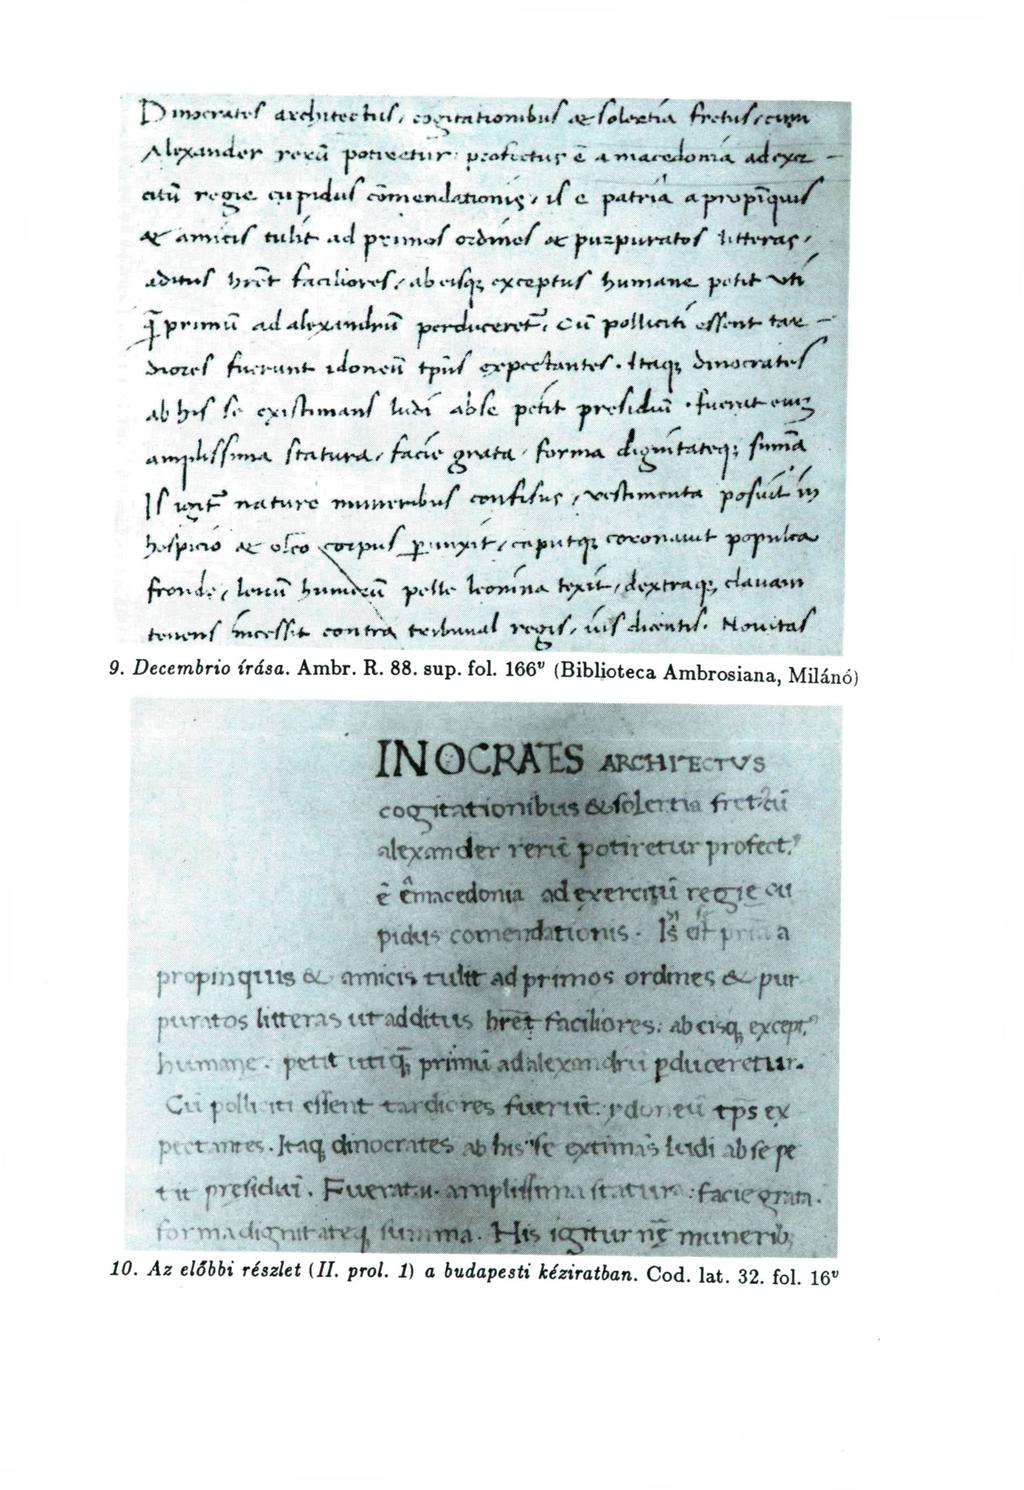 Dinocrates architectus, cogitationibus & solertia fretus, cum
Alexander rerū potiretur: profectus ē a macedonia ad exer
citū regie cupidus cōmendationis, is e patria a propīquis
& amicis tulit ad primos ordines & purpuratos litteras,
aditus hr̄et faciliores, ab eisq; exceptus humane petit uti
q̄ primū ad alexandrū perduceret᷑, Cū polliciti essent tar
diores fuerunt idoneū tp̄us expectantes. Itaq; dinocrates
ab his se existimans ludi ab se petit presidiū. fuerat eniȝ
amplissima statura, facie grata, forma dignitateq; sūma
Is igit᷑ nature muneribus confisus, vestimenta posuit in
hospicio & oleo corpus ꝑunxit, caputq; coronauit populea
fronde, leuū humerū pelle leonina texit, dextraq; clauam
tenens incessit contra tribunal regis, iuris dicentis. Nouitas
9. Decembrio írása. Ambr. R. 88. sup. fol. 166ᵛ (Biblioteca Ambrosiana, Milánó)
INOCRATES ARCHITECTVS
cogitationibus & solertia fret᷒ cū
alexander rerū potiretur profect᷒
ē macedonia ad exercitū regie cu
pidus comendationis. Is a
propinquis & amicis tulit ad primos ordines & pur
puratos litteras ut additus hrēt faciliores: ab eisq; except᷒
humane. petit utiq; primū ad alexandrū ꝑduceretur.
Cū polliciti essent tardiores fuerūt. ydoneū tp̄s ex
pectantes. Itaq; dinocrates ab his se extimās ludi ab se pe
tit presidiū. Fuerat .n. amplissima statura: facie grata.
forma dignitateq; summa. His igitur nē munerib;
10. Az előbbi részlet (II. prol. 1) a budapesti kéziratban. Cod. lat. 32. fol. 16ᵛ